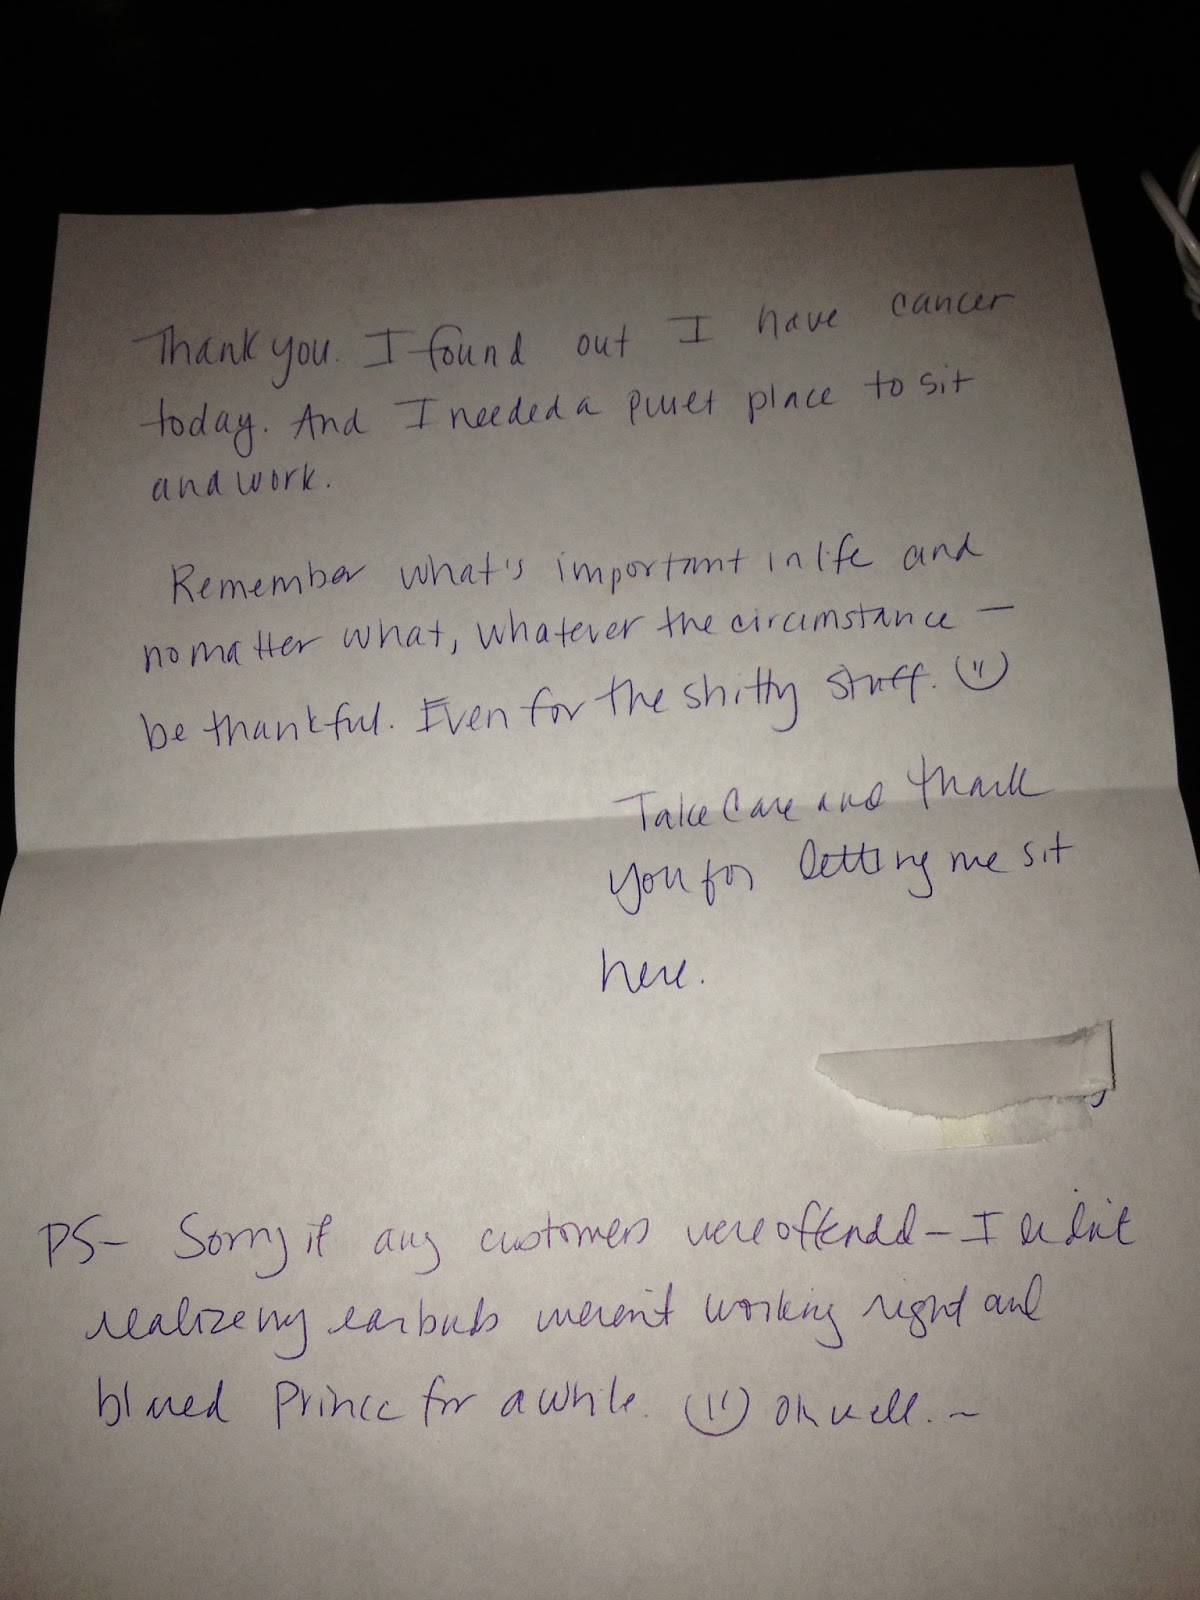 Thank you. I found out I have cancer
today. And I needed a quiet place to sit
and work.
Remember what's important in life and
no matter what, whatever the circumstance —
be thankful. Even for the shitty stuff.
Take Care and thank
you for letting me sit
here.
PS- Sorry if any customers were offended - I didn't
realize my earbuds weren't working right and
blared Prince for awhile. Oh well. ~